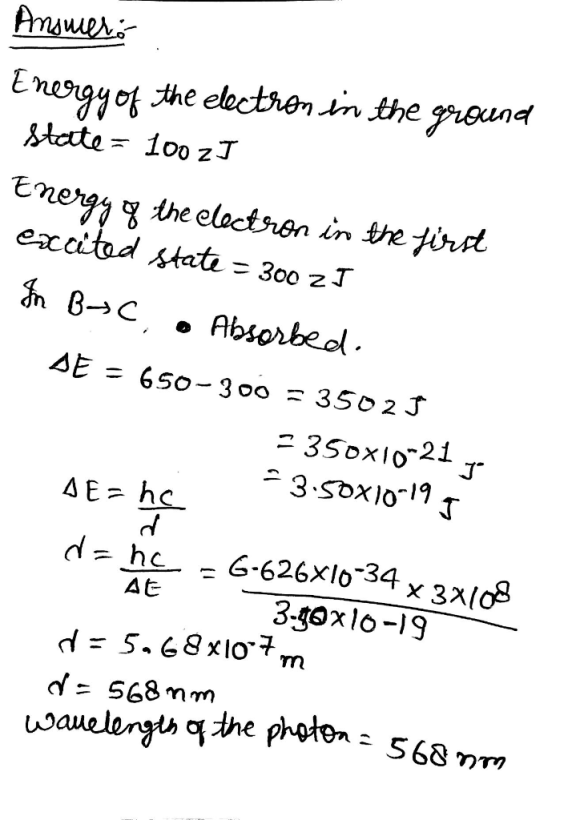 Answer:-
Energy of the electron in the ground
state = 100 zJ
Energy of the electron in the first
excited state = 300 zJ
In B→C, • Absorbed.
ΔE = 650-300 = 350zJ
= 350×10-21 J
= 3.50×10-19 J
ΔE = hc
d
d = hc = 6.626×10-34 × 3×108
ΔE 3.50×10-19
d = 5.68×10-7 m
d = 568 nm
wavelength of the photon = 568 nm